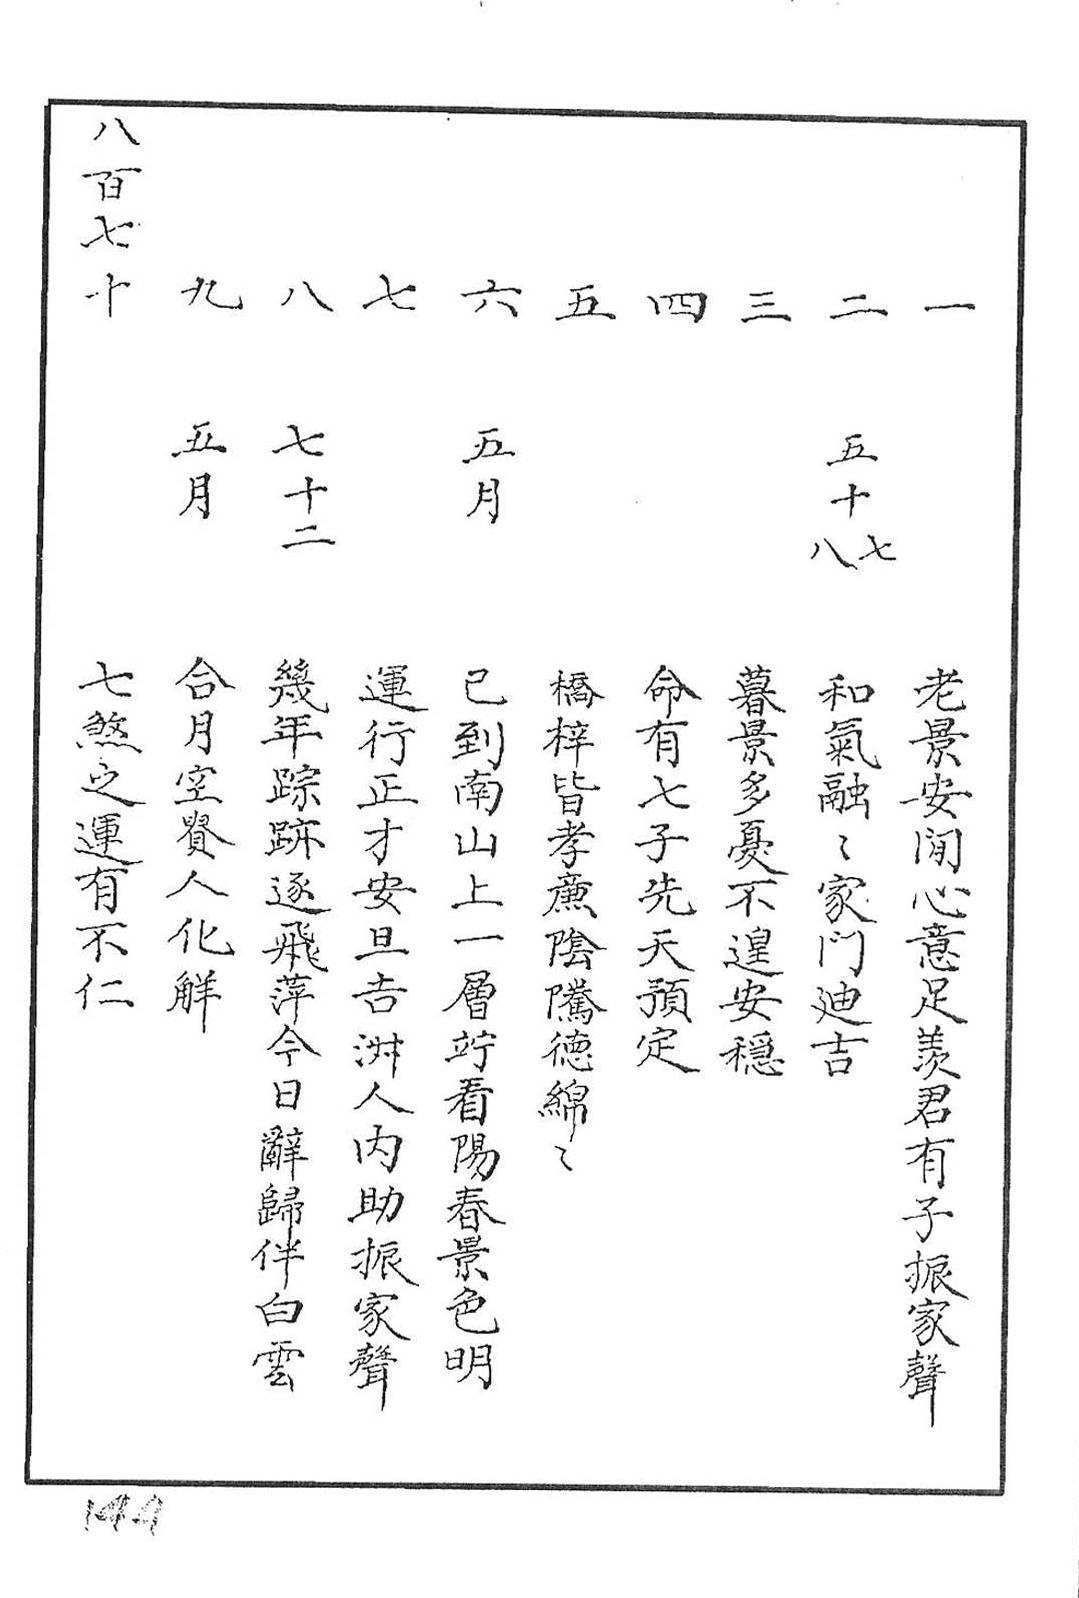 一 老景安閒心意足羨君有子振家聲
二 五十七八 和氣融〻家門迪吉
三 暮景多憂不遑安穩
四 命有七子先天預定
五 橋梓皆孝廉陰騭德綿〻
六 五月 已到南山上一層竚看陽春景色明
七 運行正才安且吉淑人内助振家聲
八 七十二 幾年踪跡逐飛萍今日辭歸伴白雲
九 五月 合月空賢人化解
八百七十 七煞之運有不仁
144